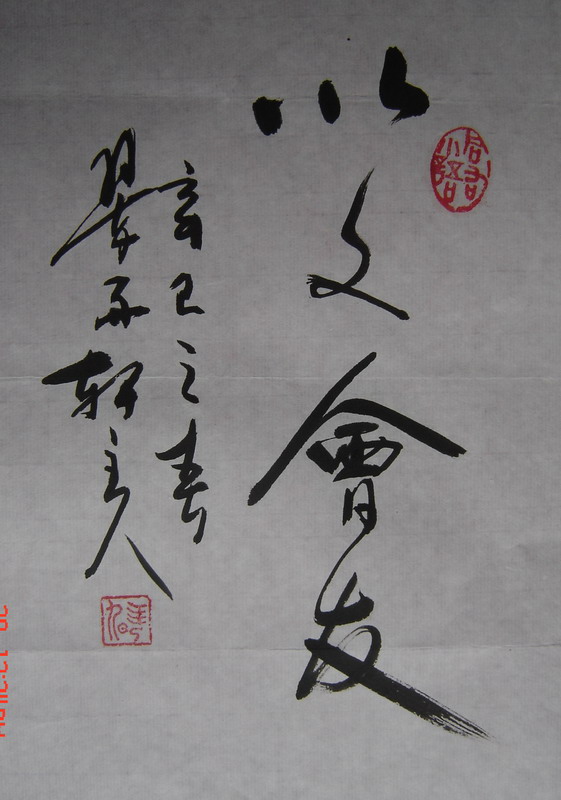 以文會友
辛巳之春
軒主人